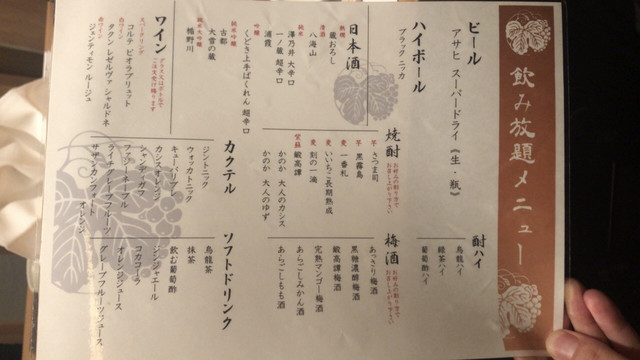 飲み放題メニュー
ビール
アサヒ スーパードライ《生・瓶》
酎ハイ
烏龍ハイ
緑茶ハイ
葡萄酢ハイ
ハイボール
ブラックニッカ
焼酎
お好みの割り方で
お楽しみ下さい
芋 さつま司
芋 黒霧島
麦 一番札
麦 いいちこ長期熟成
麦 刻の一滴
紫蘇 鍛高譚
かのか 大人のカシス
かのか 大人のゆず
梅酒
お好みの割り方で
お楽しみ下さい
あっさり梅酒
黒糖濃醇梅酒
鍛高譚梅酒
完熟マンゴー梅酒
あらごしみかん酒
あらごしもも酒
日本酒
蔵おろし
清酒 八海山
純米 澤乃井 大辛口
一ノ蔵 超辛口
吟醸 浦霞
くどき上手ばくれん 超辛口
純米吟醸 古都
大雪の蔵
純米大吟醸 幡野川
ワイン
スパークリング
コルテ ビオラ ブリュット
白ワイン
タクン レゼルヴァ シャルドネ
赤ワイン
ジェンティモン ルージュ
カクテル
ジントニック
ウォッカトニック
キューバリブレ
カシスオレンジ
シャンディガフ
ファジーネーブル
ライチグレープフルーツ
サザンカンフォート オレンジ
ソフトドリンク
烏龍茶
抹茶
飲む葡萄酢
ジンジャエール
コカコーラ
オレンジジュース
グレープフルーツジュース